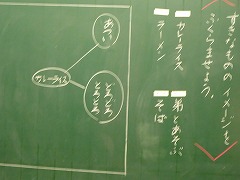 すきなもののイメージを
ふくらませよう。
カレーライス
ラーメン
弟とあそぶ
そば
あつい
カレーライス
どろどろ
とろとろ